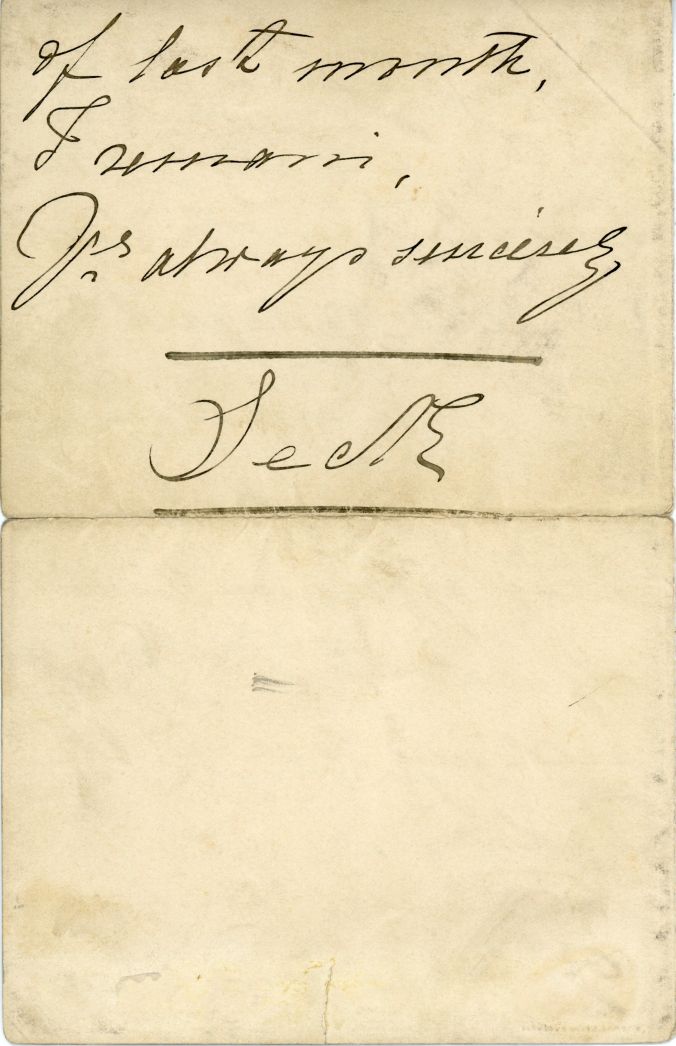 of last month,
I remain,
Yrs always sincerely
Teck